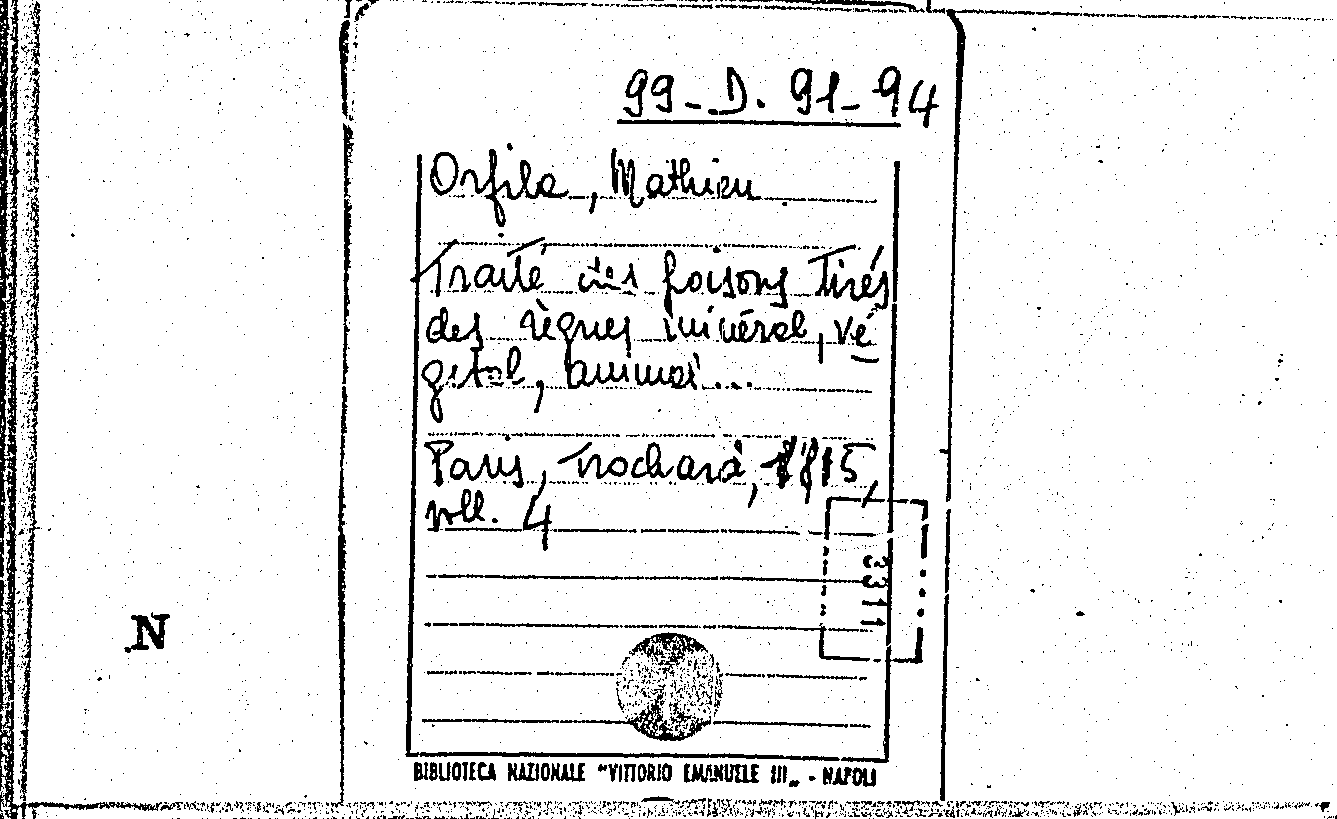 99-D. 91-94
Orfila, Mathieu
Traité des poisons tirés
des règnes minéral, vé
gétal, animal...
Paris, Crochard, 1815,
voll. 4
3311
N
BIBLIOTECA NAZIONALE "VITTORIO EMANUELE III„ - NAPOLI